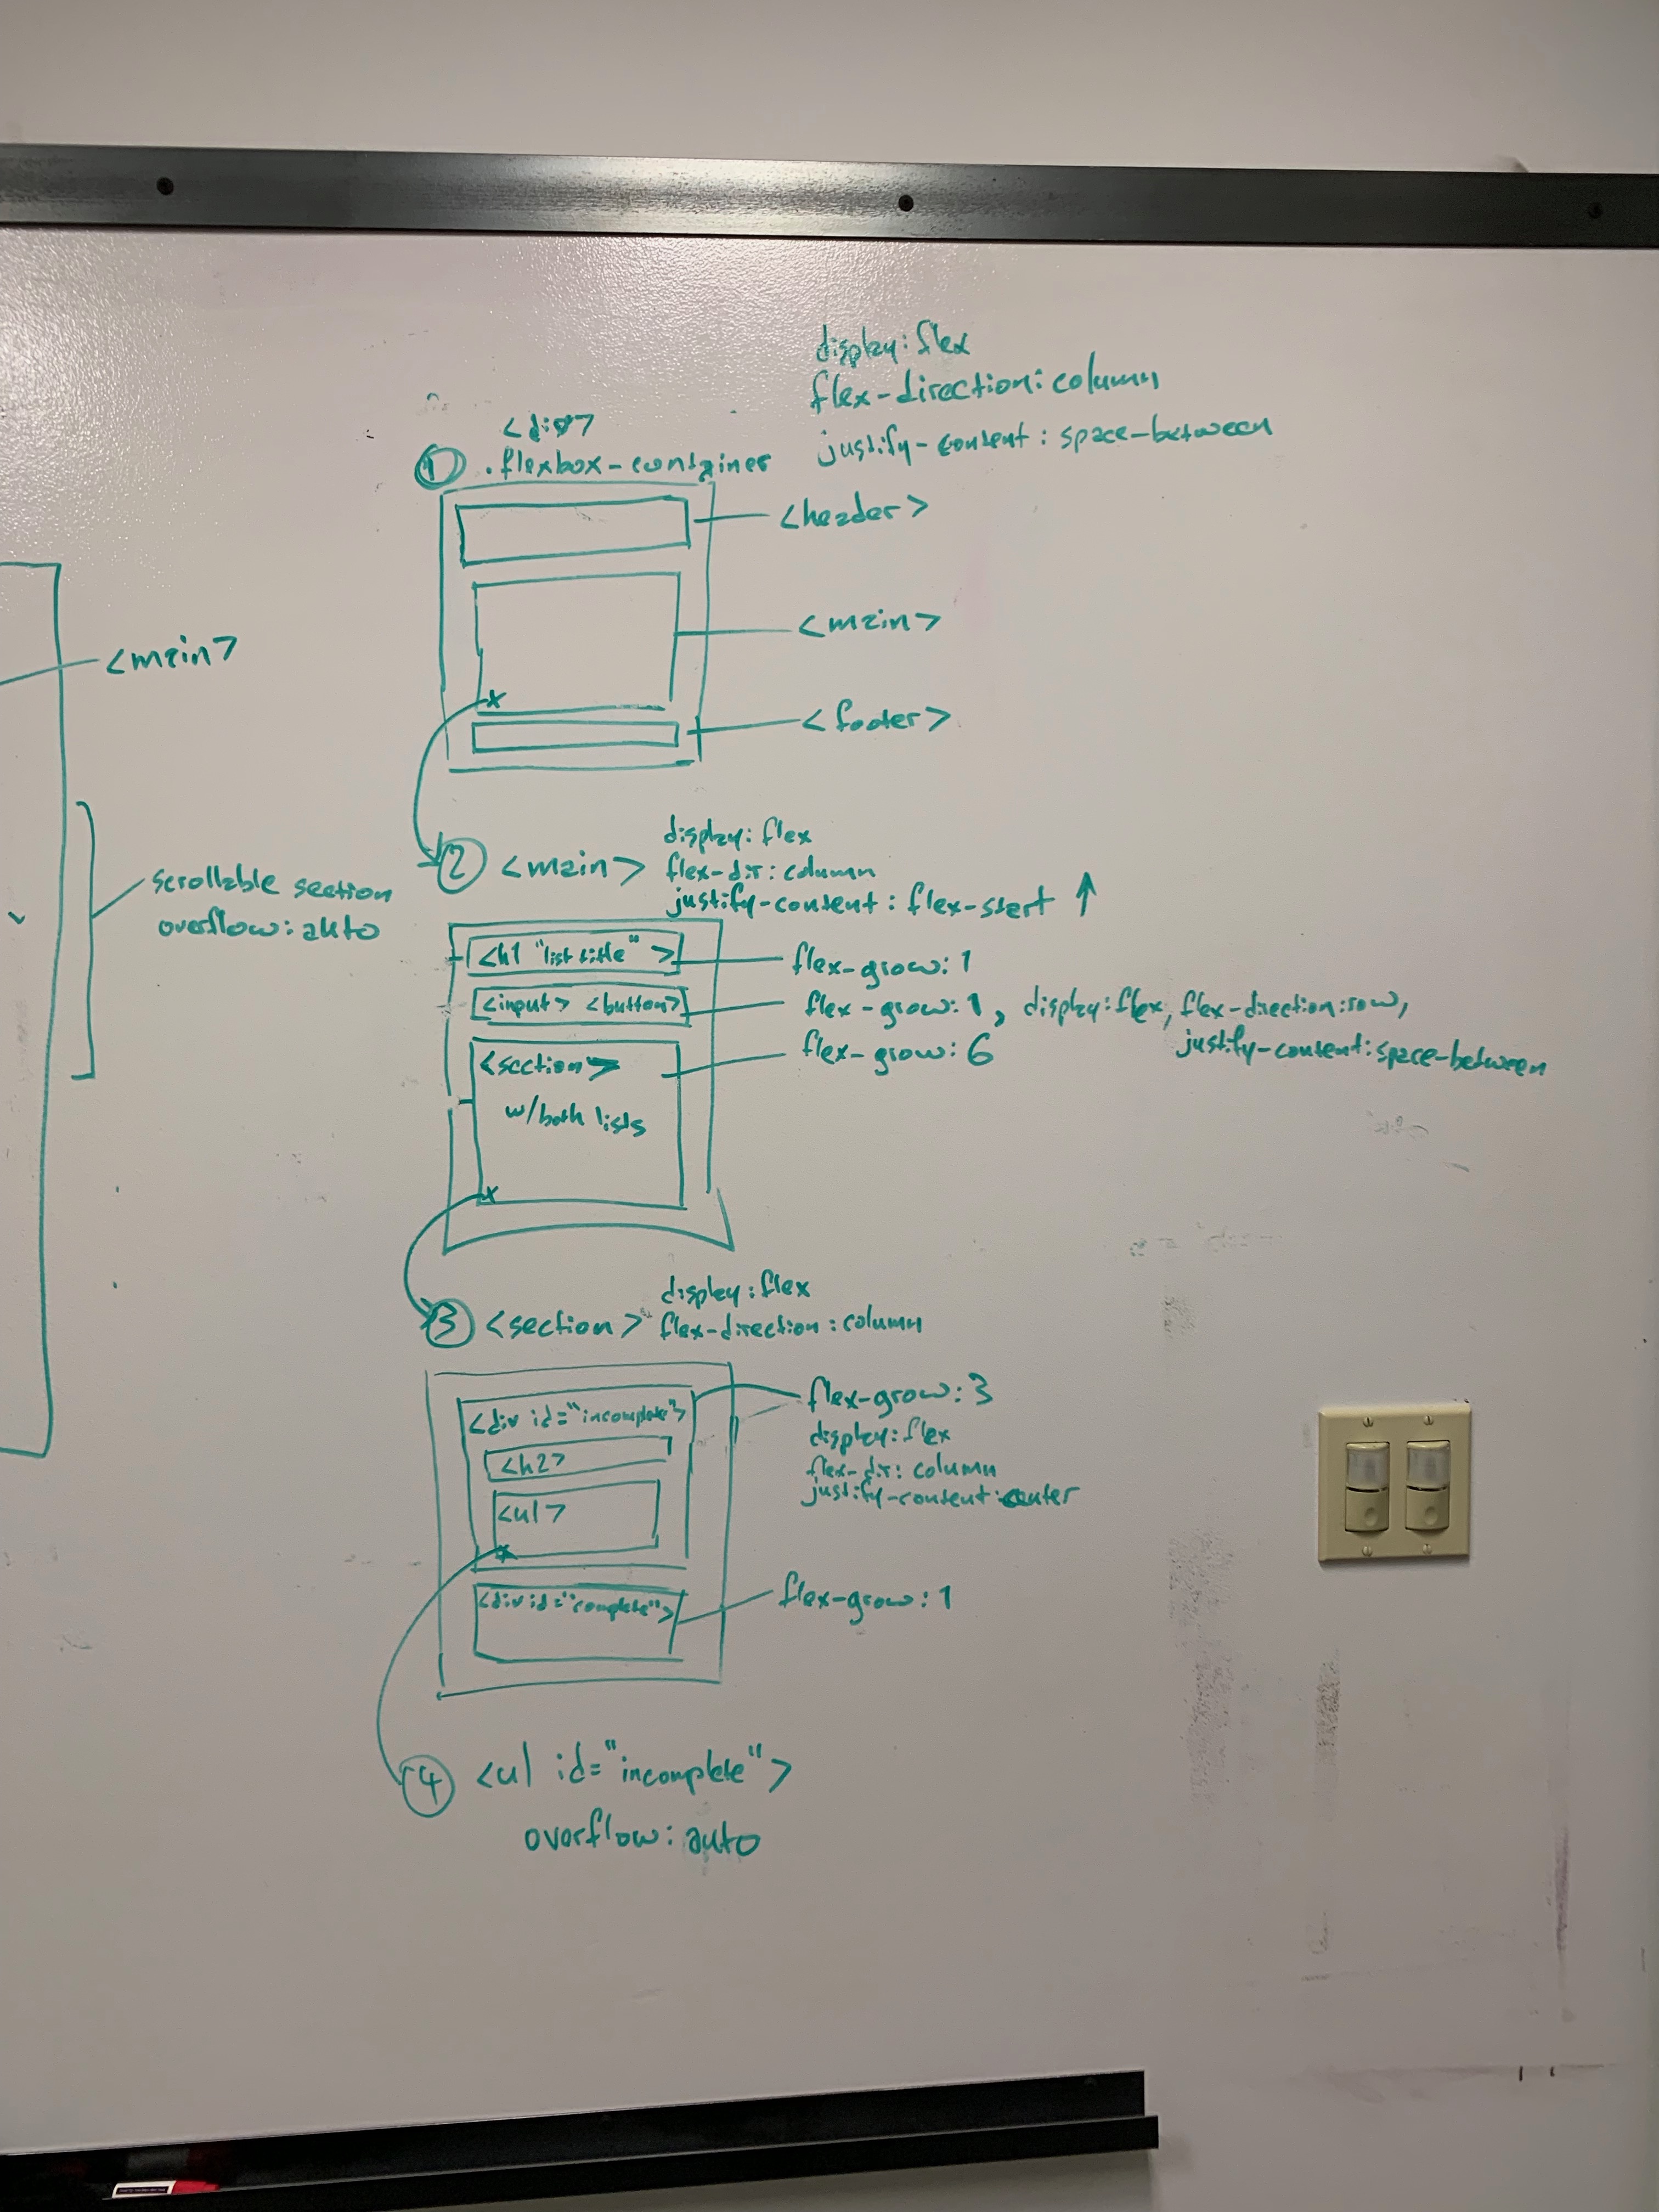 <main>
scrollable section
overflow: auto
<div>
① .flexbox-container
display: flex
flex-direction: column
justify-content: space-between
<header>
<main>
<footer>
② <main>
display: flex
flex-dir: column
justify-content: flex-start ↑
<h1 "list title" >
flex-grow: 1
<input> <button>
flex-grow: 1, display: flex, flex-direction: row,
justify-content: space-between
<section>
w/both lists
flex-grow: 6
③ <section>
display: flex
flex-direction: column
<div id="incomplete">
<h2>
<ul>
flex-grow: 3
display: flex
flex-dir: column
justify-content: center
<div id="complete">
flex-grow: 1
④ <ul id="incomplete">
overflow: auto